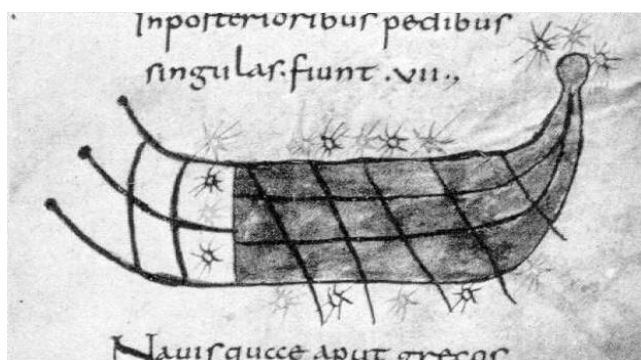 In posterioribus pedibus
singulas. fiunt .vii.,
Navis qucce aput grecos